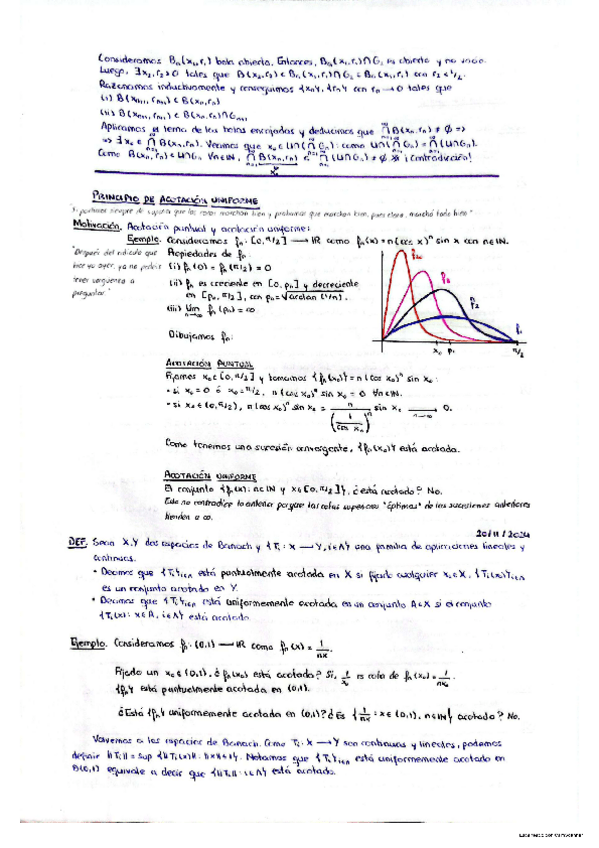 Consideramos B_n(x_1,r_1) bola abierta. Entonces, B_n(x_1,r_1)∩G_2 es abierto y no vacío.
Luego, ∃x_2,r_2>0 tales que B(x_2,r_2) ⊂ B_n(x_1,r_1)∩G_2 ⊂ B_n(x_1,r_1) con r_2<1/2.
Razonamos inductivamente y conseguimos {x_n}, {r_n} con r_n → 0 tales que
(i) B(x_{n+1}, r_{n+1}) ⊂ B(x_n, r_n)
(ii) B(x_{n+1}, r_{n+1}) ⊂ B(x_n, r_n)∩G_{n+1}
Aplicamos el lema de las bolas encajadas y deducimos que ∩ B(x_n, r_n) ≠ ∅ =>
=> ∃x_0 ∈ ∩ B(x_n, r_n). Veamos que x_0 ∈ U∩(∩G_n): como U∩(∩G_n) = ∩(U∩G_n).
Como B(x_n, r_n) ⊂ U∩G_n ∀n∈IN, ∩ B(x_n, r_n) ⊂ ∩(U∩G_n) ≠ ∅ ¡Contradicción!
x_0
PRINCIPIO DE ACOTACIÓN UNIFORME
Motivación. Acotación puntual y acotación uniforme:
Ejemplo. Consideramos f_n: [0,π/2] → IR como f_n(x) = n(cos x)^n sin x con n∈IN.
"Después del ridículo que
hice yo ayer, ya no podéis
tener vergüenza a
preguntar."
Propiedades de f_n:
(i) f_n(0) = f_n(π/2) = 0
(ii) f_n es creciente en [0, p_n] y decreciente
en [p_n, π/2], con p_n =
(iii) lim f_n(p_n) = ∞
n→∞
Dibujamos f_n:
f_2
f_1
x_0 p_1 π/2
ACOTACIÓN PUNTUAL
Fijamos x_0∈[0,π/2] y tomamos {f_n(x_0)} = n(cos x_0)^n sin x_0:
• si x_0 = 0 ó x_0 = π/2, n(cos x_0)^n sin x_0 = 0 ∀n∈IN.
• si x_0 ∈ (0,π/2), n(cos x_0)^n sin x_0 = n/(1/cos x_0)^n sin x_0 → 0.
Como tenemos una sucesión convergente, {f_n(x_0)} está acotada.
ACOTACIÓN UNIFORME
El conjunto {f_n(x): n∈IN y x∈[0,π/2]}, ¿está acotado? No.
Esto no contradice lo anterior porque las cotas superiores "óptimas" de las sucesiones anteriores
tienden a ∞.
20/11/2024
DEF. Sean X,Y dos espacios de Banach y {T_i: X → Y, i∈Λ} una familia de aplicaciones lineales y
continuas.
• Decimos que {T_i}_{i∈Λ} está puntualmente acotada en X si fijado cualquier x_0∈X, {T_i(x)}_{i∈Λ}
es un conjunto acotado en Y.
• Decimos que {T_i}_{i∈Λ} está uniformemente acotada en un conjunto A⊂X si el conjunto
{T_i(x): x∈A, i∈Λ} está acotado.
Ejemplo. Consideramos f_n: (0,1) → IR como f_n(x) = 1/nx.
Fijado un x_0∈(0,1), ¿f_n(x_0) está acotado? Sí, 1/x_0 es cota de f_n(x_0) = 1/nx_0.
{f_n} está puntualmente acotada en (0,1).
¿Está {f_n} uniformemente acotada en (0,1)? ¿Es {1/nx : x∈(0,1), n∈IN} acotado? No.
Volvemos a los espacios de Banach. Como T_i: X → Y son continuas y lineales, podemos
definir ||T_i|| = sup {||T_i(x)||: ||x||≤1}. Notamos que {T_i}_{i∈Λ} está uniformemente acotada en
B(0,1) equivale a decir que {||T_i||: i∈Λ} está acotado.